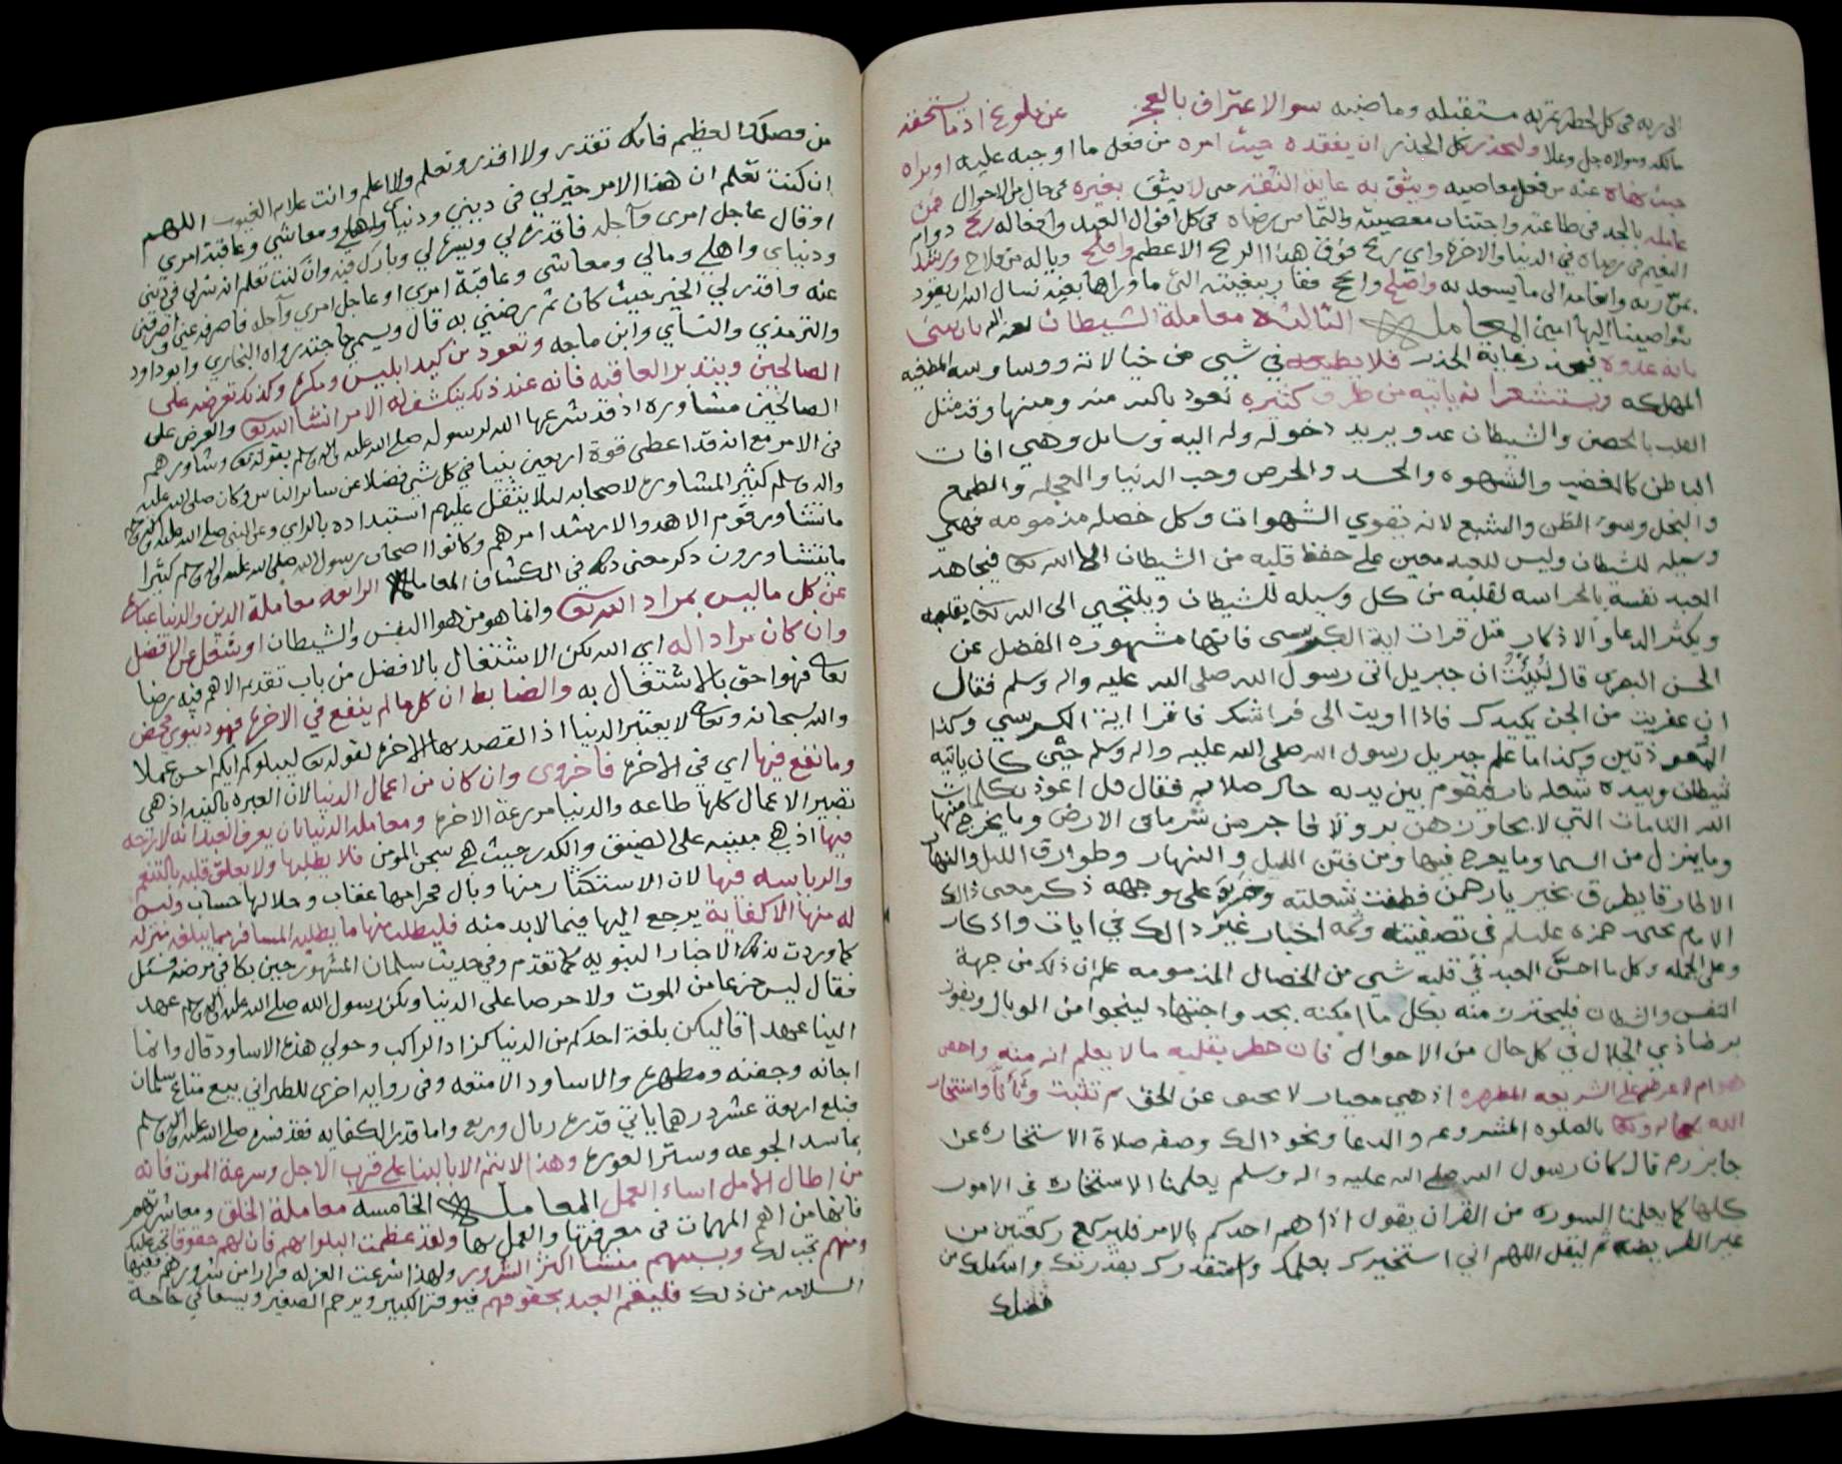 الى ربه في كل لحظة تمر به مستقبله وماضيه سوا الاعتراف بالعجز عن بلوغ اد ما يستحقه
مالكه ومولاه جل وعلا وليحذر كل الحذر ان يفقده حيث امره من فعل ما اوجبه عليه او يراه
حيث نهاه عنه من فعل معاصيه ويثق به غاية الثقه حتى لا يثق بغيره في حال من الاحوال فمن
عامله بالجد في طاعته واجتناب معصيته والتماس رضاه في كل اقوال العبد وافعاله ربح دوام
النعيم في رضاه في الدنيا والاخرة واي ربح فوق هذا الربح الاعظم وافلح وياله من فلاح ورشد
بمن ربه وانعامه الى ما يسعد به واصلح وانجح ففاز ببغيته التي ما وراها بغيه نسال الله ان يقود
بنواصينا اليها امين المعاملة الثالثة معاملة الشيطان لعنه الله بان يتمنى
بانه عدوه فيحذر غاية الحذر فلا يطيعه في شي من خيالاته ووساوسه المطغيه
المهلكه ويستشعر انه ياتيه من طرق كثيره نعوذ بالله منه ومنها وقد مثل
القلب بالحصن والشيطان عدو يريد دخوله وله اليه وسايل وهي افات
الباطن كالغضب والشهوه والحسد والحرص وحب الدنيا والعجله والطمع
والبخل وسوء الظن والشبع لانه يقوي الشهوات وكل خصله مذمومه فهي
وسيله للشيطان وليس للعبد معين على حفظ قلبه من الشيطان الا الله تعالى فيجاهد
العبد نفسه بالحراسه لقلبه من كل وسيله للشيطان ويلتجي الى الله تعالى بقلبه
ويكثر الدعا والاذكار مثل قرات اية الكرسي فانها مشهوره الفضل عن
الحسن البصري قال نبئت ان جبريل اتى رسول الله صلى الله عليه واله وسلم فقال
ان عفريت من الجن يكيدك فاذا اويت الى فراشك فاقرا اية الكرسي وكذا
المعوذتين وكذا ما علم جبريل رسول الله صلى الله عليه واله وسلم حين كان ياتيه
شيطان وبيده شعله نار فيقوم بين يديه حال صلاته فقال قل اعوذ بكلمات
الله التامات التي لا يجاوزهن بر ولا فاجر من شر ما في الارض وما يخرج منها
وما ينزل من السما وما يعرج فيها ومن فتن الليل والنهار وطوارق الليل والنهار
الا طارقا يطرق بخير يا رحمن فطفئت شعلته وخر على وجهه ذكر معنى ذالك
الامام يحيى بن حمزه عليلم في تصفيته وثمه اخبار غير ذالك في ايات واذكار
وعلى الجمله وكل ما احس العبد في قلبه شي من الخصال المذمومه علم ان ذلك من جهة
النفس والشيطان فليحترز منه بكل ما امكنه بجد واجتهاد لينجوا من الوبال ويفوز
برضا ذي الجلال في كل حال من الاحوال فان خطر بقلبه ما لا يعلم انه منه
على الشريعه المطهره اذ هي معيار لا يحيف عن الحق ثم تثبت وتأنا واستخار
الله سبحانه وتعالى بالصلوه المشروعه والدعا ونحو ذالك وصفه صلاة الاستخاره عن
جابر رض قال كان رسول الله صلى الله عليه واله وسلم يعلمنا الاستخاره في الامور
كلها كما يعلمنا السوره من القران يقول اذا هم احدكم بالامر فليركع ركعتين من
غير الفريضه ثم ليقل اللهم اني استخيرك بعلمك واستقدرك بقدرتك واسئلك من
فضلك
من فضلك العظيم فانك تقدر ولا اقدر وتعلم ولا اعلم وانت علام الغيوب اللهم
ان كنت تعلم ان هذا الامر خير لي في ديني ودنياي واهلي ومعاشي وعاقبة امري
او قال عاجل امري وآجله فاقدره لي ويسره لي وبارك فيه وان كنت تعلم انه شر لي في ديني
ودنياي واهلي ومالي ومعاشي وعاقبة امري او عاجل امري وآجله فاصرفه عني واصرفني
عنه واقدر لي الخير حيث كان ثم رضني به قال ويسمي حاجته رواه البخاري وابو داود
والترمذي والنساي وابن ماجه وتعوذ من كيد ابليس ومكره وكذلك تعرضه على
الصالحين ويتدبر العاقبه فانه عند ذلك ينكشف له الامر انشا الله تعالى والعرض على
الصالحين مشاوره اذ قد شرعها الله لرسوله صلى الله عليه واله وسلم بقوله تعالى وشاورهم
في الامر مع انه قد اعطي قوة اربعين نبيا في كل شي فضلا عن ساير الناس وكان صلى الله عليه
واله وسلم كثير المشاوره لاصحابه لئلا يثقل عليهم استبداده بالراي وعن النبي صلى الله عليه واله وسلم
ما تشاور قوم الا هدوا لارشد امرهم وكانوا اصحاب رسول الله صلى الله عليه واله وسلم كثيرا
ما يتشاورون ذكر معنى ذلك في الكشاف المعاملة الرابعه معاملة الدين والدنيا عباره
عن كل ما ليس بمراد الله تعالى وانما هو من هوا النفس والشيطان او شغل عن الافضل
وان كان مرادا له اي الله لكن الاشتغال بالافضل من باب تقديم الاهم فيه رضا
تعالى فهو احق بالاشتغال به والضابط ان كلما لم ينفع في الاخرة فهو دنيوي محض
والله سبحانه وتعالى لا يعتبر الدنيا اذ القصد بها الاخره لقوله تعالى ليبلوكم ايكم احسن عملا
وما نفع فيها اي في الاخرة فاخروي وان كان من اعمال الدنيا لان العبره بالنيه اذ هي
تصير الاعمال كلها طاعه والدنيا مزرعة الاخره ومعاملة الدنيا بان يعرف العبد انه لا راحه
فيها اذ هي مبنيه على الضيق والكدر حيث هي سجن المومن فلا يطلبها ولا يعلق قلبه بالتنعم
والرياسه فيها لان الاستكثار منها وبال فحرامها عقاب وحلالها حساب وليس
له منها الا كفاية يرجع اليها فيما لا بد منه فليطلب منها ما يطلبه المسافر مما يبلغه منزله
كما وردت بذلك الاخبار النبويه كما تقدم وفي حديث سلمان المشهور حين بكا في مرضه فسئل
فقال ليس جزعا من الموت ولا حرصا على الدنيا ولكن رسول الله صلى الله عليه واله وسلم عهد
الينا عهدا قال ليكن بلغة احدكم من الدنيا كزاد الراكب وحولي هذه الاساود قال وانما
اجانه وجفنه ومطهره والاساود الامتعه وفي روايه اخرى للطبراني بيع متاع سلمان
فبلغ اربعة عشر درهما ياتي قدره ريال وربع واما قدر الكفايه فقد فسره صلى الله عليه واله وسلم
بما سد الجوعه وستر العورة وهذا لا يتم الا بالبنا على قرب الاجل وسرعة الموت فانه
من اطال الامل اساء العمل المعاملة الخامسه معاملة الخلق ومعاشرتهم
فانها من اهم المهمات في معرفتها والعمل بها ولقد عظمت البلوا بهم فان لهم حقوقا تجب عليك
ومنهم تجب لك وبسببهم منشا اكثر الشرور ولهذا شرعت العزله فرارا من شرورهم ففيها
السلامه من ذلك فليقم العبد بحقوقهم فيوقر الكبير ويرحم الصغير ويسعا في حاجة